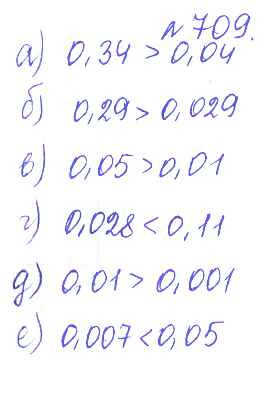 № 709.
а) 0,34 > 0,04
б) 0,29 > 0,029
в) 0,05 > 0,01
г) 0,028 < 0,11
д) 0,01 > 0,001
е) 0,007 < 0,05